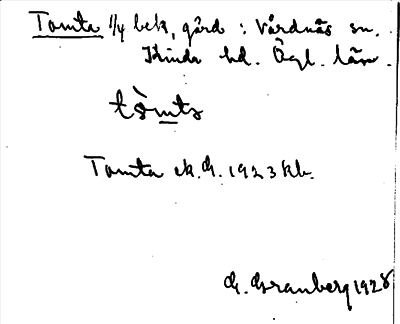 Tomta 1/4 bek, gård : Vårdnäs sn.
Kinda hd. Ögl. län.
tòmta
Tomta ek. G. 1923 kb.
G. Granberg 1928